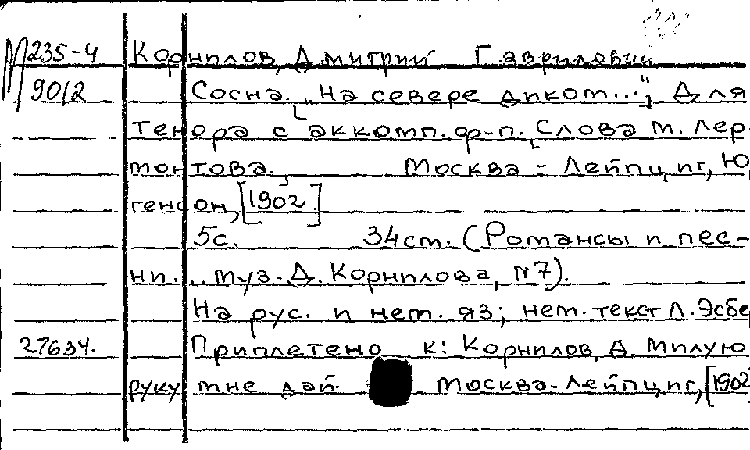 М 235-4 Корнилов, Дмитрий Гаврилович
901/2 Сосна. ["На севере диком..."]. Для
тенора с аккомп. ф-п. Слова М. Лер-
монтова. Москва - Лейпциг, Ю
генсон, [1902]
5с. 34см. (Романсы и пес-
ни. .. муз. Д. Корнилова, №7).
На рус. и нем. яз; нем. текст Л. Эсбе
27634. Приплетено к: Корнилов, Д. Милую
руку мне дай Москва-Лейпциг, [1902